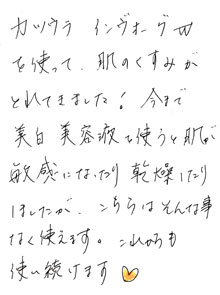 カツウラ インヴォーグW
を使って、肌のくすみが
とれてきました! 今まで
美白美容液を使うと肌が
敏感になったり乾燥したり
しましたが、こちらはそんな事
なく使えます。これからも
使い続けます